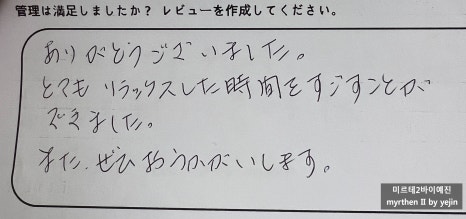 管理は満足しましたか? レビューを作成してください。
ありがとうございました。
とても リラックスした時間をすごすことが
できました。
また、ぜひおうかがいします。
미르테2바이예진
myrthen II by yejin